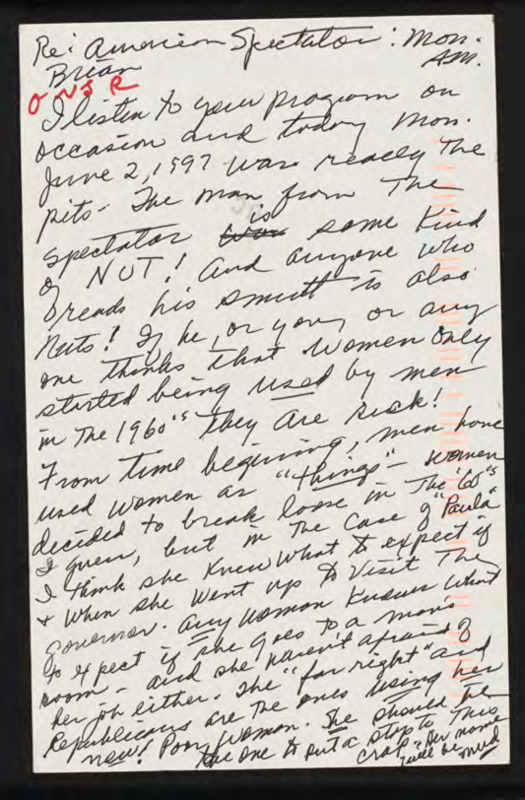 Re: American Spectator: Mon.
Brian AM.
O N J R
I listen to your program on
occasion and today Mon.
June 2, 1997 was really the
pits. The man from the
is
spectator was some kind
of NUT! And anyone who
reads his smutt is also
Nuts! If he, or you, or any
one thinks that women only
started being used by men
in the 1960's they are sick!
From time begining, men have
used women as "things" – women
decided to break loose in the "60"s
I guess, but in the case of "Paula"
I think she knew what to expect if
& when she went up to visit the
governor. Any woman knows what
to expect if she goes to a man's
room – and she wasn't afraid of
her job either. The "far right" and
Republicans are the ones using her
now! Poor woman. She should be
the one to put a stop to this
crap. Her name
will be mud